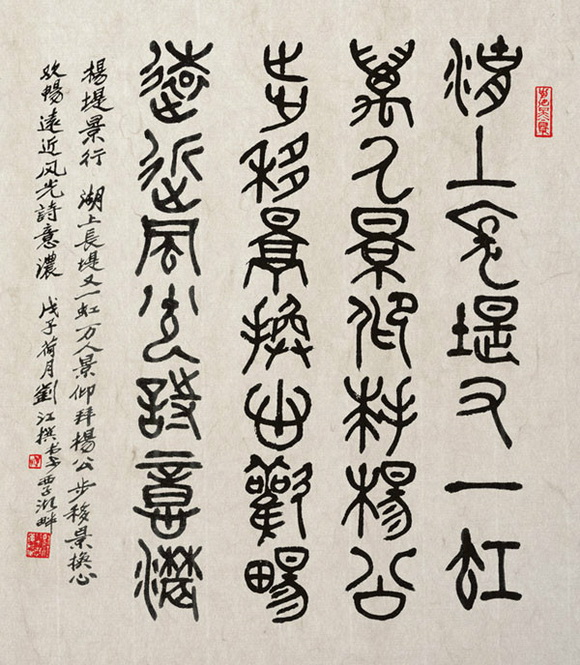 湖上長堤又一虹
萬人景仰拜楊公
步移景換心歡暢
遠近風光詩意濃
楊堤景行 湖上長堤又一虹万人景仰拜楊公步移景換心
欢暢遠近风光詩意濃 戊子荷月劉江撰书于西子湖畔